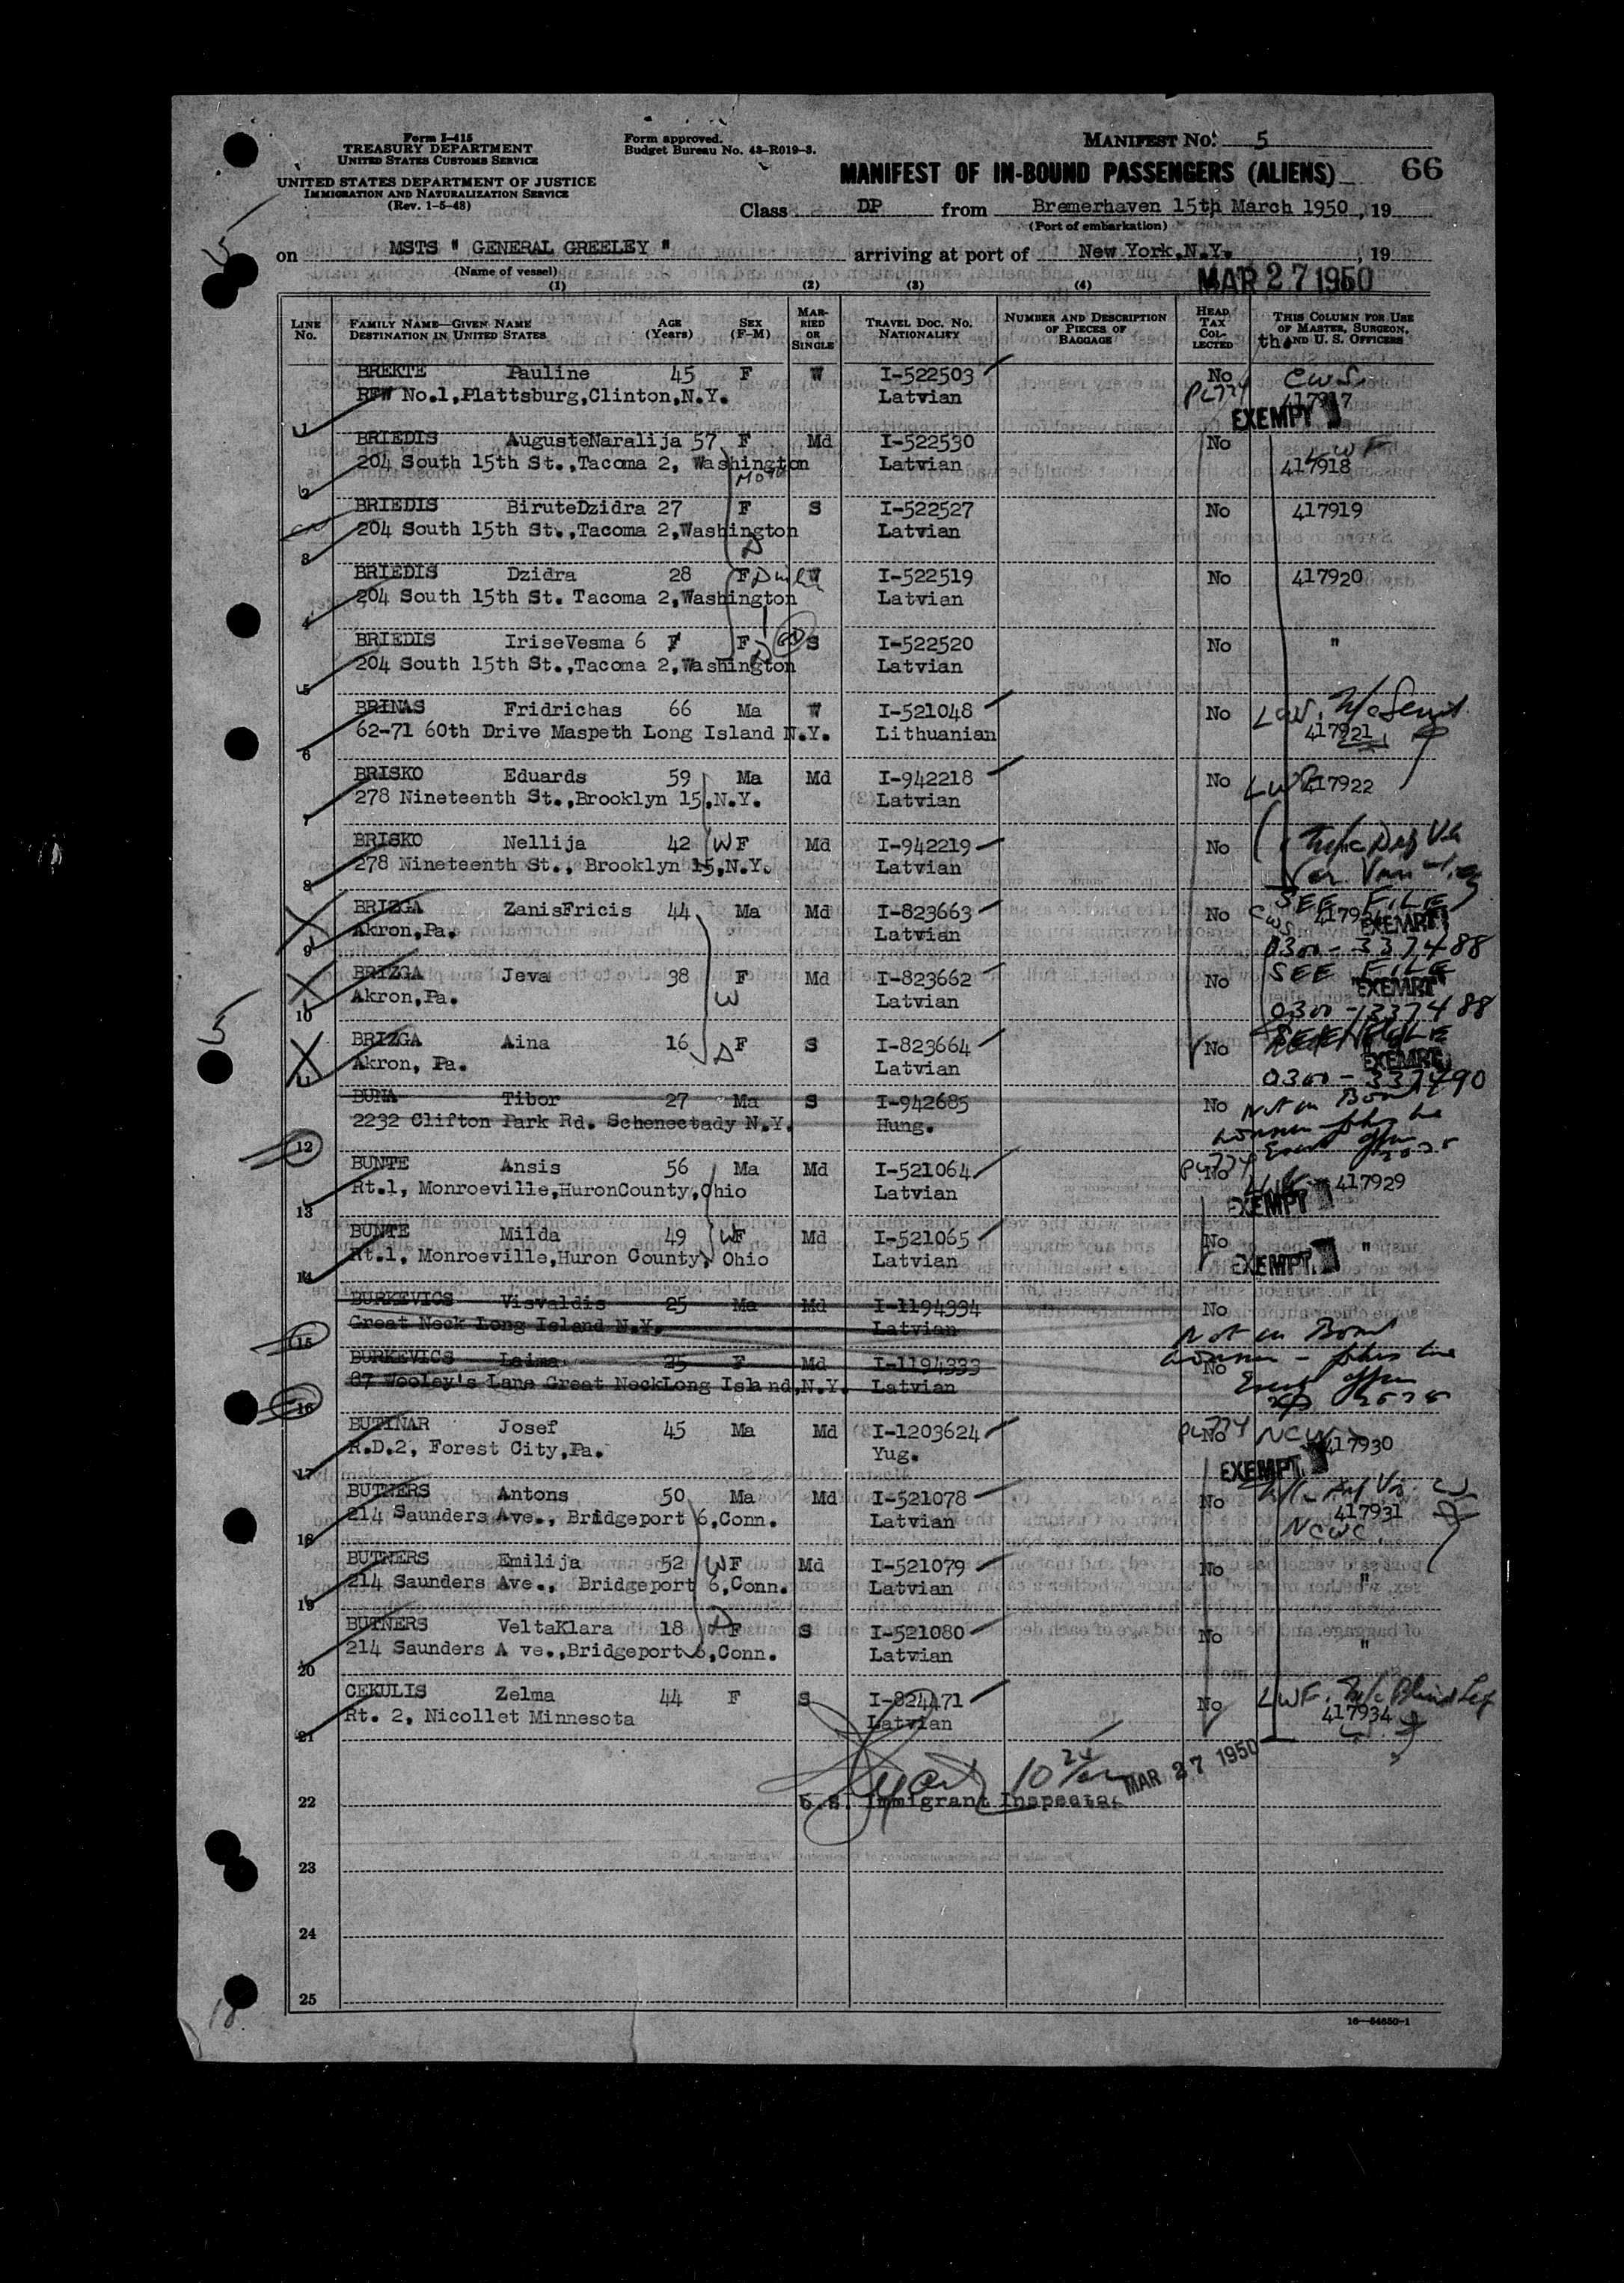 Form I-415
TREASURY DEPARTMENT
UNITED STATES CUSTOMS SERVICE
UNITED STATES DEPARTMENT OF JUSTICE
IMMIGRATION AND NATURALIZATION SERVICE
(Rev. 1-5-48)
Form approved.
Budget Bureau No. 43-R019-3.
MANIFEST NO. 5
MANIFEST OF IN-BOUND PASSENGERS (ALIENS) 66
Class DP from Bremerhaven 15th March 1950, 19
(Port of embarkation)
on MSTS " GENERAL GREELEY " arriving at port of New York, N.Y. , 19
(Name of vessel)
MAR 27 1950
(1) (2) (3) (4)
LINE No. FAMILY NAME—GIVEN NAME DESTINATION IN UNITED STATES AGE (Years) SEX (F-M) MARRIED OR SINGLE TRAVEL DOC. NO. NATIONALITY NUMBER AND DESCRIPTION OF PIECES OF BAGGAGE HEAD TAX COLLECTED THIS COLUMN FOR USE OF MASTER, SURGEON, AND U. S. OFFICERS
BREKTE Pauline 45 F W I-522503 No CWS
No.1,Plattsburg,Clinton,N.Y. Latvian PL774 417917
1 EXEMPT
BRIEDIS AugusteNaralija 57 F Md I-522530 No
204 South 15th St.,Tacoma 2, Washington Latvian 417918
2
BRIEDIS BiruteDzidra 27 F S I-522527 No 417919
204 South 15th St.,Tacoma 2,Washington Latvian
3 D
BRIEDIS Dzidra 28 F W I-522519 No 417920
204 South 15th St. Tacoma 2,Washington Latvian
4
BRIEDIS IriseVesma 6 F S I-522520 No "
204 South 15th St.,Tacoma 2,Washington Latvian
5
BRINAS Fridrichas 66 Ma W I-521048 No
62-71 60th Drive Maspeth Long Island N.Y. Lithuanian 417921
6
BRISKO Eduards 59 Ma Md I-942218 No LWF 417922
278 Nineteenth St.,Brooklyn 15,N.Y. Latvian
7
BRISKO Nellija 42 W F Md I-942219 No
278 Nineteenth St., Brooklyn 15,N.Y. Latvian
8
SEE FILE
BRIZGA ZanisFricis 44 Ma Md I-823663 No CWS
Akron,Pa. Latvian EXEMPT
9 0300-337488
SEE FILE
BRIZGA Jeva 38 F Md I-823662 No EXEMPT
Akron,Pa. W Latvian
10 0300-337488
BRIZGA Aina 16 D F S I-823664 No
Akron, Pa. Latvian EXEMPT
11 0300-337490
BUNA Tibor 27 Ma S I-942685 No Not on Board
2232 Clifton Park Rd. Schenectady N.Y. Hung.
12
BUNTE Ansis 56 Ma Md I-521064 PL774 No
Rt.1, Monroeville,HuronCounty,Ohio Latvian 417929
13 EXEMPT
BUNTE Milda 49 W F Md I-521065 No "
Rt.1, Monroeville,Huron County, Ohio Latvian EXEMPT
14
BURKEVICS Visvaldis 25 Ma Md I-1194334 No
Great Neck Long Island N.Y. Latvian
15 Not on Board
BURKEVICS Laima 25 F Md I-1194333 No
67 Wooley's Lane Great NeckLong Island,N.Y. Latvian
16
BUTINAR Josef 45 Ma Md I-1203624 PL774 No NCWC
R.D.2, Forest City,Pa. Yug. 417930
17 EXEMPT
BUTNERS Antons 50 Ma Md I-521078 No
214 Saunders Ave., Bridgeport 6,Conn. Latvian 417931
18 NCWC
BUTNERS Emilija 52 W F Md I-521079 No "
214 Saunders Ave., Bridgeport 6,Conn. Latvian
19
BUTNERS VeltaKlara 18 D F S I-521080 No "
214 Saunders A ve.,Bridgeport 6,Conn. Latvian
20
CEKULIS Zelma 44 F S I-824471 No LWF
Rt. 2, Nicollet Minnesota Latvian 417934
21
MAR 27 1950
22 U.S. Immigrant Inspector
23
24
25
16—54650-1
18